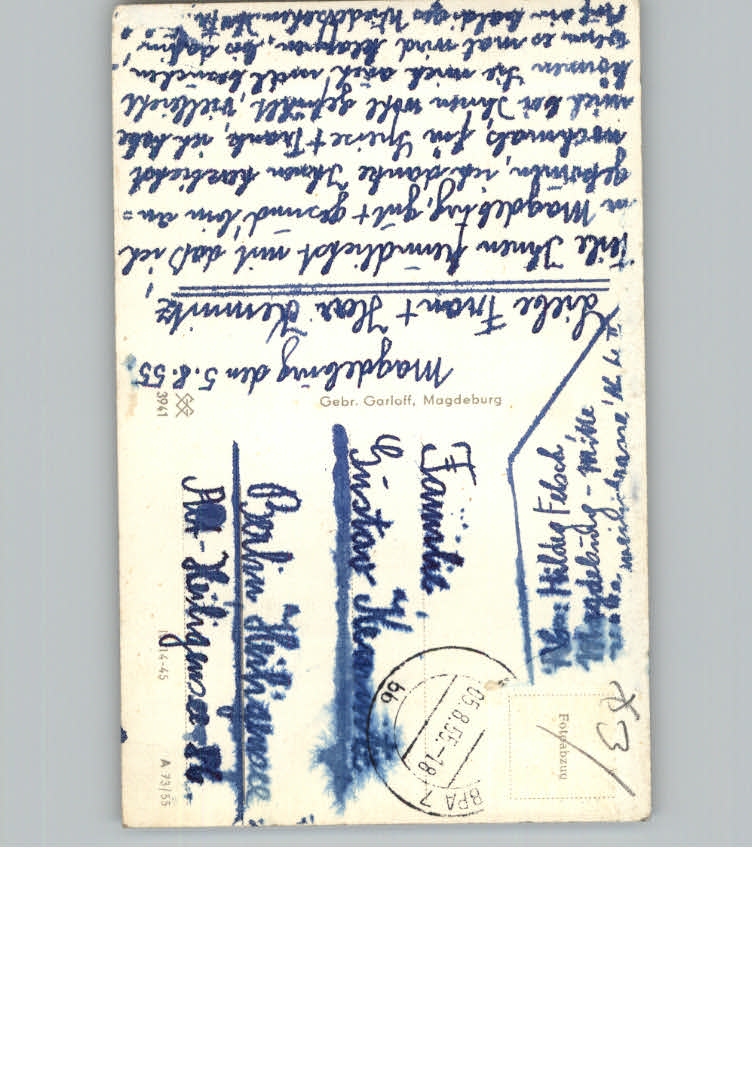 Magdeburg den 5.8.55
Liebe Frau + Herr Kemnitz,
Teile Ihnen freundlichst mit daß ich
in Magdeburg, gut + gesund bin an=
gekommen, ich danke Ihnen herzlichst
nochmals, für Speise + Trank, ich habe
mich bei Ihnen wohl gefühlt, vielleicht
können Sie mich auch mal besuchen
wenn es mal wird klappen, bis dahin,
Auf ein baldiges Wiedersehen
Gebr. Garloff, Magdeburg
3941
Familie
Gustav Kemnitz
Berlin Heiligensee
Alt-Heiligensee
14-45
A 73/55
Magdeburg-Mitte
Fotoabzug
05.8.55.-18
BPA 7
bb